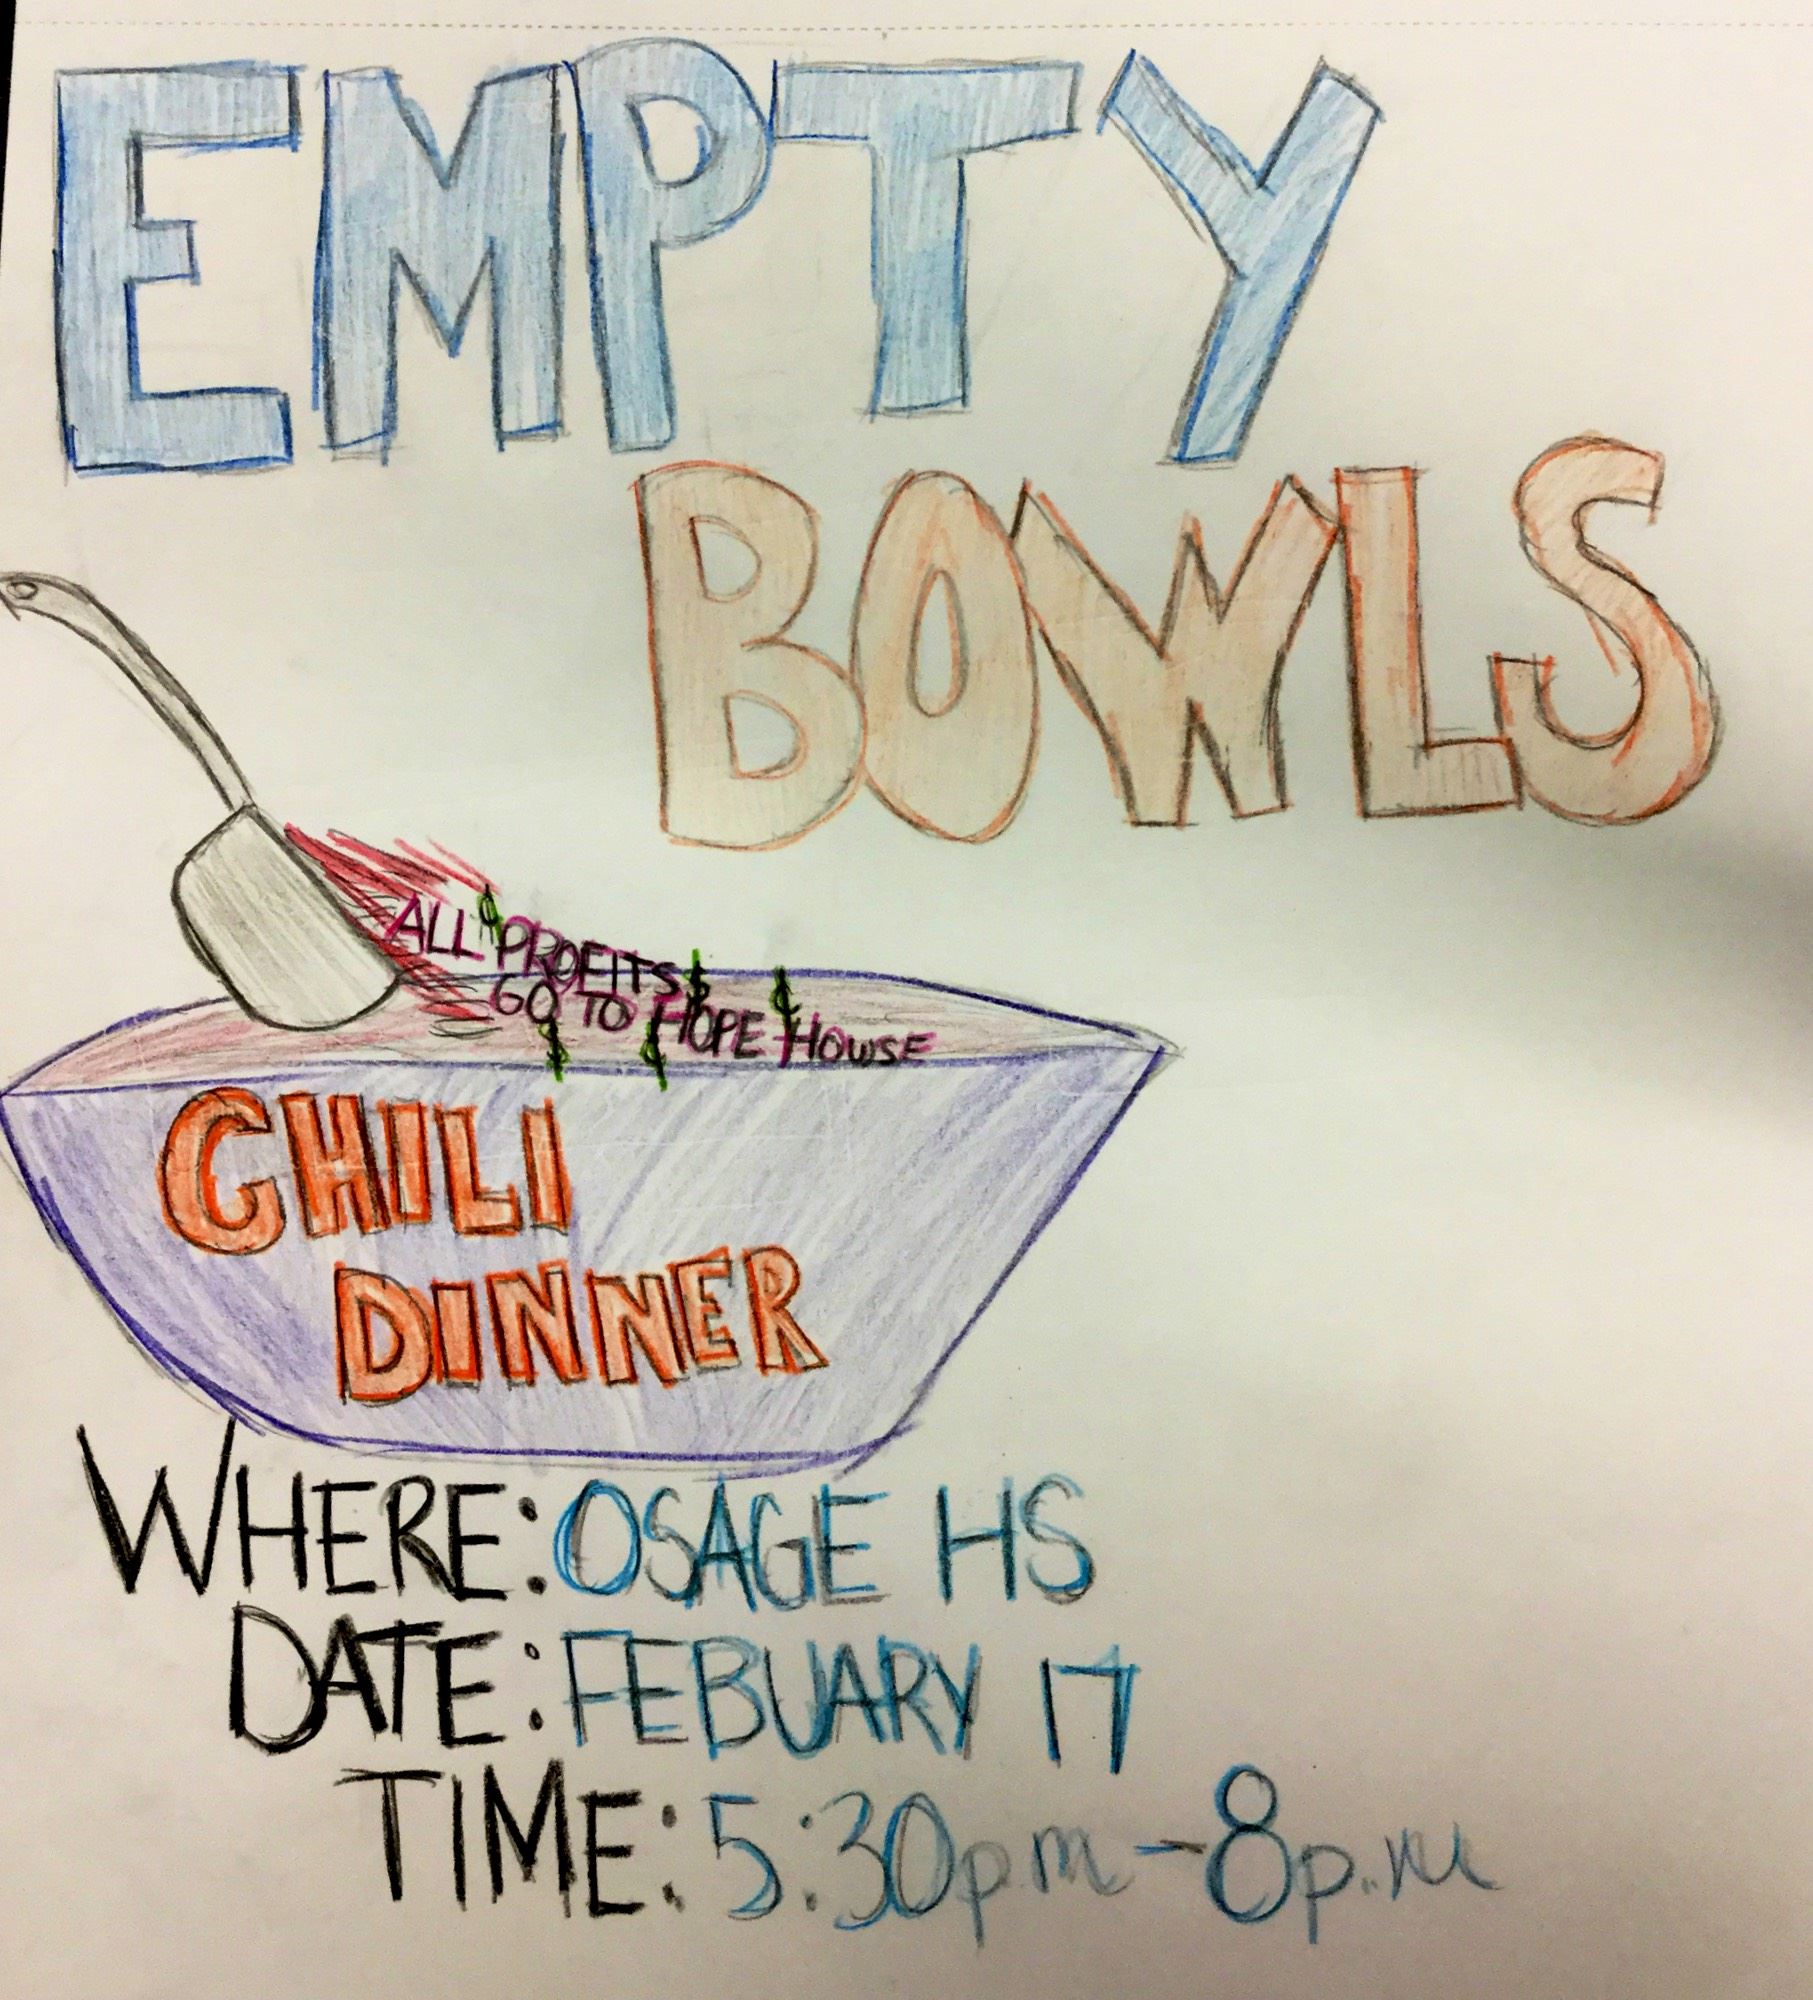 EMPTY
BOWLS
ALL PROFITS
GO TO HOPE HOUSE
CHILI
DINNER
WHERE: OSAGE HS
DATE: FEBUARY 17
TIME: 5:30p.m - 8p.m